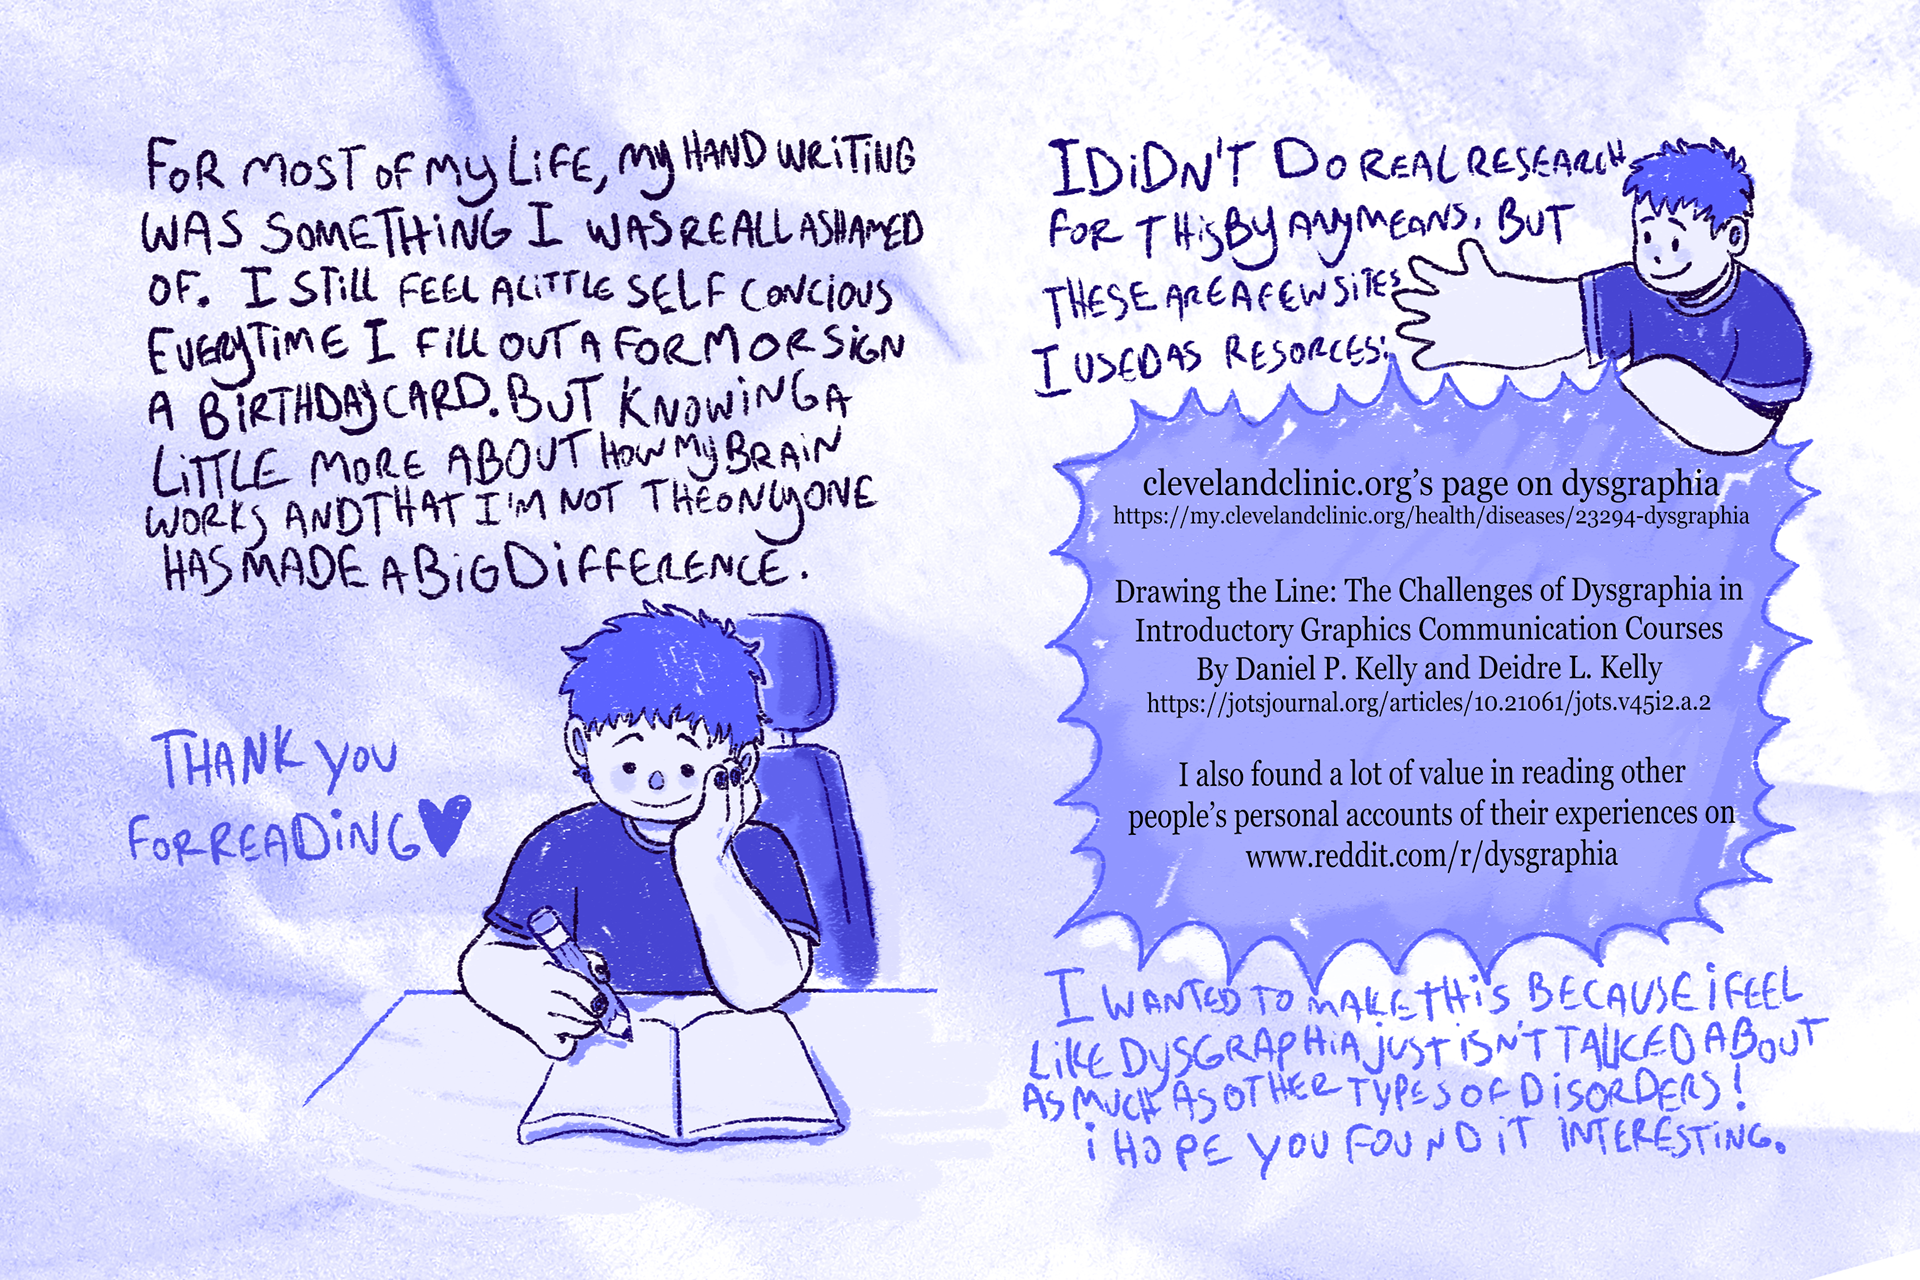 FOR MOST OF MY LiFE, My HAND WRiTiNG
WAS SOMETHiNG I WAS REALL ASHAMED
OF. I STiLL FEEL A LiTTLE SELF CONCiOUS
EVERyTiME I FiLL OUT A FORM OR SiGN
A BiRTHDAy CARD. BUT KNOWiNG A
LiTTLE MORE ABOUT HOW My BRAiN
WORKS AND THAT I'M NOT THE ONLy ONE
HAS MADE A BiG DiFFERENCE.
THANK yOU
FOR READiNG
I DiDN'T DO REAL RESEARCH
FOR THiS By ANy MEANS, BUT
THESE ARE A FEW SiTES
I USED AS RESORCES:
clevelandclinic.org’s page on dysgraphia
https://my.clevelandclinic.org/health/diseases/23294-dysgraphia
Drawing the Line: The Challenges of Dysgraphia in
Introductory Graphics Communication Courses
By Daniel P. Kelly and Deidre L. Kelly
https://jotsjournal.org/articles/10.21061/jots.v45i2.a.2
I also found a lot of value in reading other
people’s personal accounts of their experiences on
www.reddit.com/r/dysgraphia
I WANTED TO MAKE THiS BECAUSE i FEEL
LiKE DySGRAPHiA jUST iSN'T TALKED ABOUT
AS MUCH AS OTHER TYPES OF DiSORDERS!
i HOPE YOU FOUND iT INTERESTING.